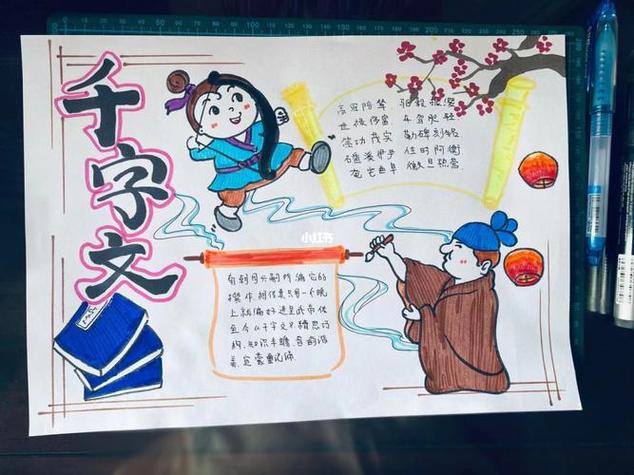 千字文
高冠陪辇 驱毂振缨
世禄侈富 车驾肥轻
策功茂实 勒碑刻铭
磻溪伊尹 佐时阿衡
奄宅曲阜 微旦孰营
小红书
编它的
只用一个晚
上就编好进呈武帝使
至今《千字文》精思巧
构,知识丰赡,音韵谐
美,宜蒙童记诵.